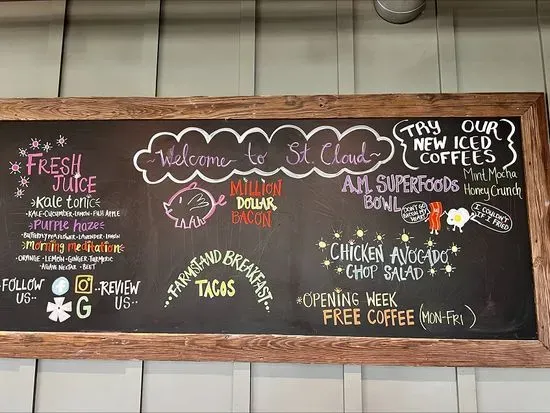 ~Welcome to St. Cloud~
FRESH
JUICE
Kale tonic
-KALE-CUCUMBER-LEMON-FUJI APPLE
Purple haze
BUTTERFLY PEA FLOWER-LAVENDER-LEMON
Morning meditation
ORANGE-LEMON-GINGER-TURMERIC
-AGAVE NECTAR-BEET
FOLLOW US..
f
G
..REVIEW US..
MILLION
DOLLAR
BACON
..FARMSTAND BREAKFAST..
TACOS
A.M. SUPERFOODS
BOWL
DON'T GO
BACON MY
HEART
I COULDN'T
IF I FRIED
CHICKEN AVOCADO
CHOP SALAD
*OPENING WEEK
FREE COFFEE (MON-FRI)
TRY OUR
NEW ICED
COFFEES
Mint Mocha
Honey Crunch